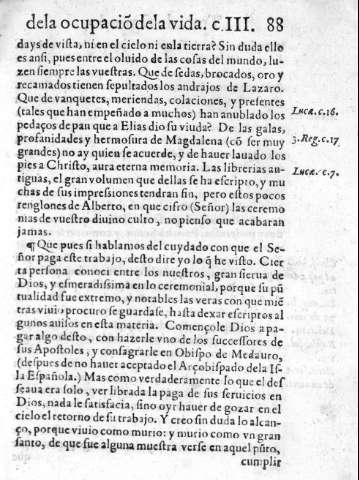 dela ocupaciõ dela vida. c. III. 88
days de vista, ni en el cielo ni enla tierra? Sin duda ello
es ansi, pues entre el oluido de las cosas del mundo, lu-
zen siempre las vuestras. Que de sedas, brocados, oro y
recamados tienen sepultados los andrajos de Lazaro.
Que de vanquetes, meriendas, colaciones, y presentes
(tales que han empeñado a muchos) han anublado los
Lucæ. c. 16.
pedaços de pan que a Elias dio su viuda? De las galas,
profanidades y hermosura de Magdalena (cõ ser muy
3. Reg. c. 17
grandes) no ay quien se acuerde, y de hauer lauado los
pies a Christo, aura eterna memoria. Las librerias an-
Lucæ. c. 7.
tiguas, el gran volumen que dellas se ha escripto, y mu
chas de sus impressiones tendran sin, pero estos pocos
renglones de Alberto, en que cifro (Señor) las ceremo
nias de vuestro diuino culto, no pienso que acabaran
jamas.
¶ Que pues si hablamos del cuydado con que el Se-
ñor paga este trabajo, desto dire yo lo q̃ he visto. Cier
ta persona conoci entre los nuestros, gran sierua de
Dios, y esmeradissima en lo ceremonial, porque su pũ
tualidad fue extremo, y notables las veras con que miẽ
tras viuio procuro se guardasse, hasta dexar escriptos al
gunos auisos en esta materia. Començole Dios a pa-
gar algo desto, con hazerle vno de los successores de
sus Apostoles, y consagrarle en Obispo de Medauro,
(despues de no hauer aceptado el Arçobispado dela Is-
la Española.) Mas como verdaderamente lo que el des
seaua era solo, ver librada la paga de sus seruicios en
Dios, nada le satisfacia, sino oyr hauer de gozar en el
cielo el retorno de su trabajo. Y creo sin duda lo alcan-
ço, porque viuio como murio: y murio como vn gran
santo, de que fue alguna muestra verse en aquel pũto,
cumplir